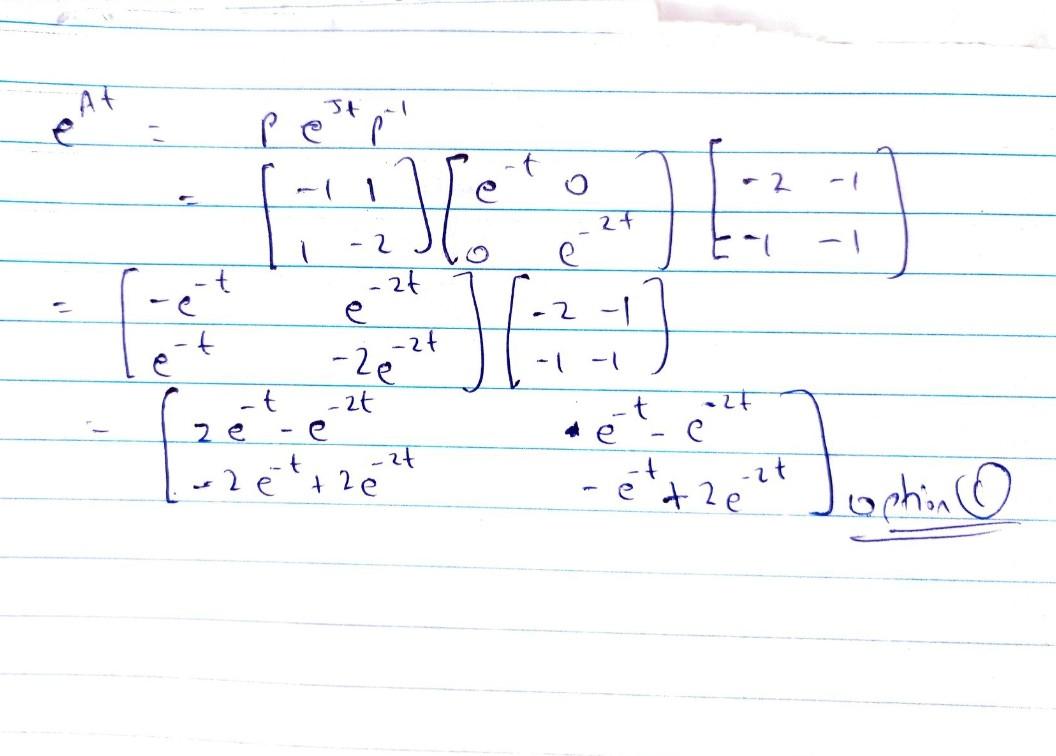 e^{At} = P e^{Jt} P^{-1}
= [ -1 1 ] [ e^{-t} 0 ] [ -2 -1 ]
[ 1 -2 ] [ 0 e^{-2t} ] [ -1 -1 ]
= [ -e^{-t} e^{-2t} ] [ -2 -1 ]
[ e^{-t} -2e^{-2t} ] [ -1 -1 ]
= [ 2e^{-t} - e^{-2t} e^{-t} - e^{-2t} ]
[ -2e^{-t} + 2e^{-2t} -e^{-t} + 2e^{-2t} ] option